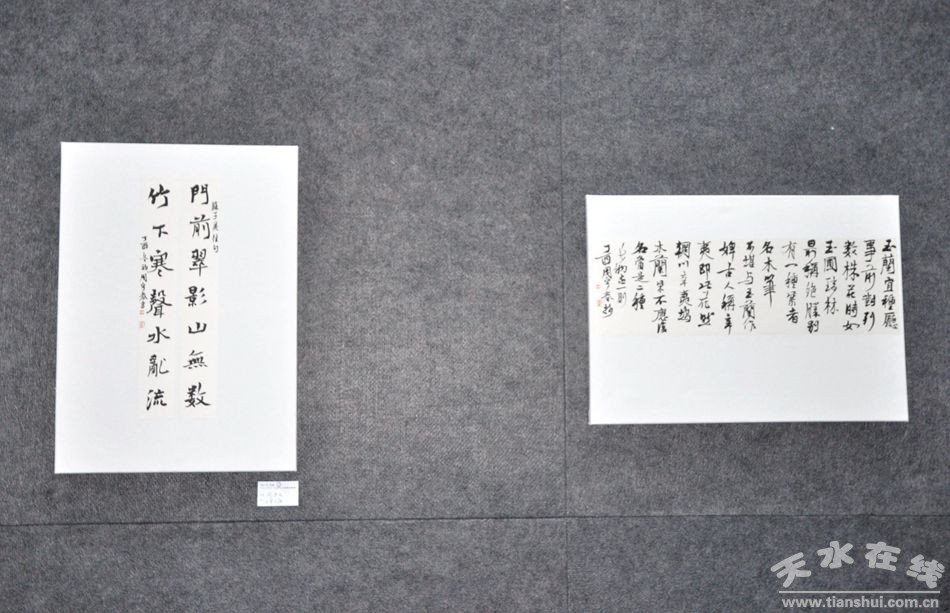 門前翠影山無数
竹下寒聲水亂流
玉蘭宜種廳
事前對列
数株花時如
玉圃瓊林
最稱絶勝別
有一種紫者
名木筆
不堪与玉蘭作
婢古人稱辛
夷即此花然
輞川辛夷塢
木蘭柴不應復
名當是二種
天水在线
www.tianshui.com.cn